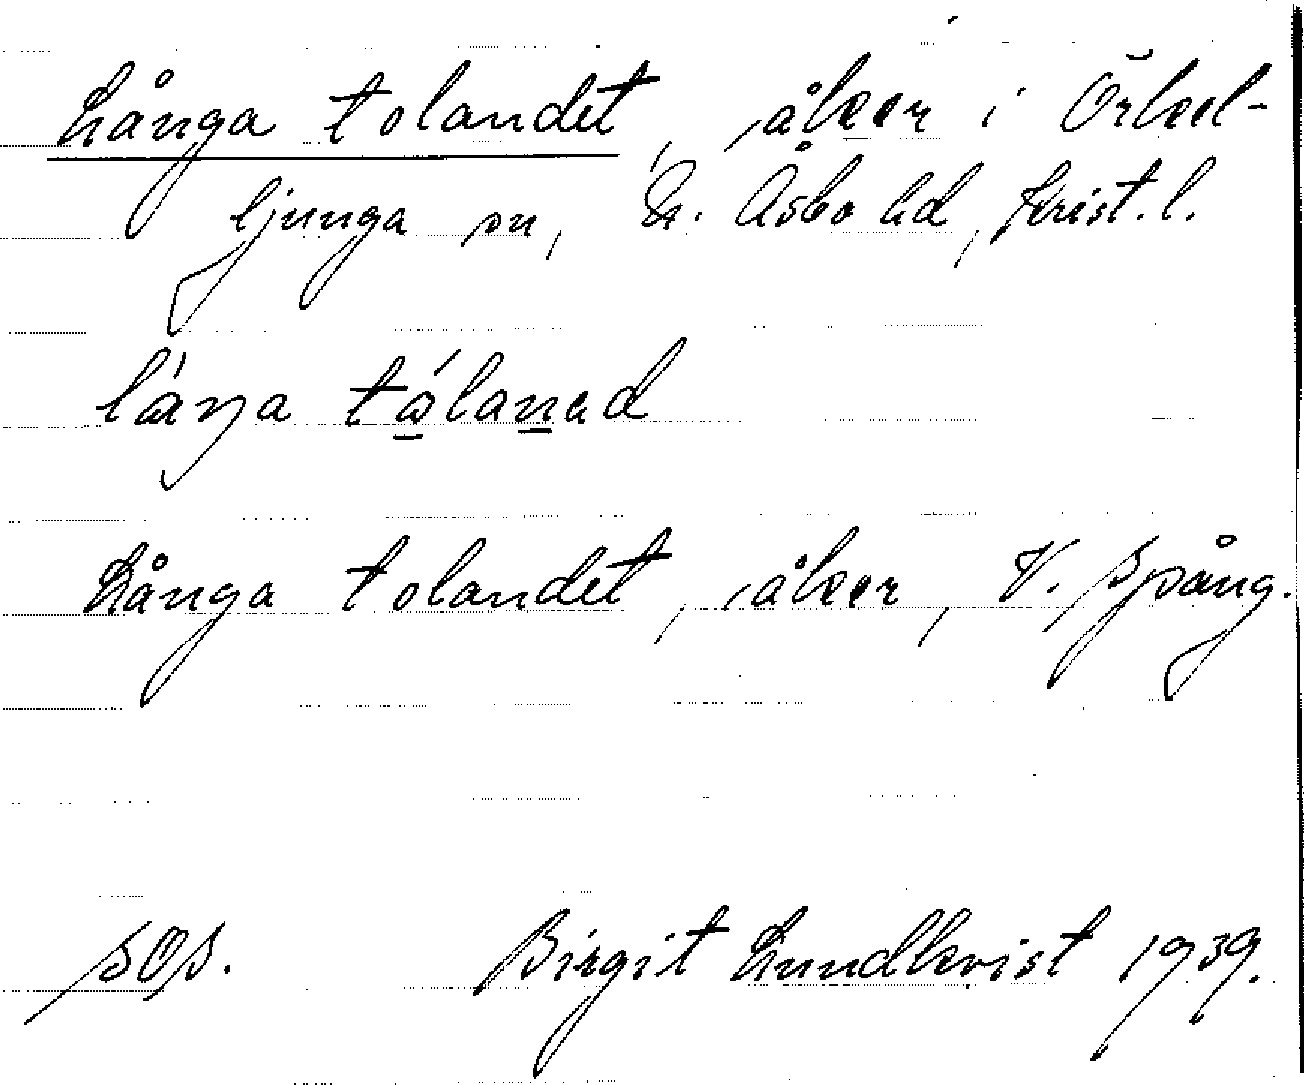 Långa tolandet, åker i Örkel-
ljunga sn, N. Åsbo hd, Krist. l.
Långa tolandet, åker, V. Spång.
SOS. Birgit Lundkvist 1939.